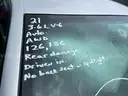 21
3.6L V-6
Auto.
AWD
126,156
Rear damage
Driver in
No back seat